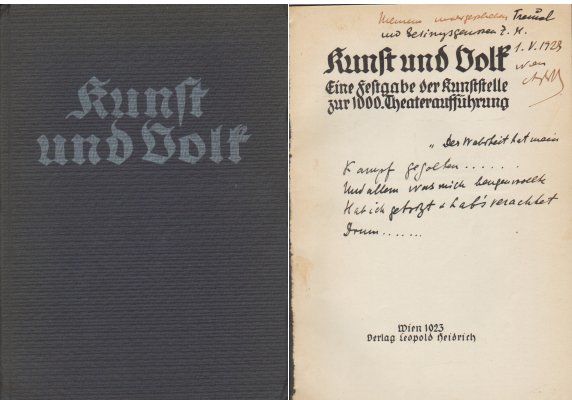 Kunst
und Volk
Meinem unvergesslichen Freund
und Gesinnungsgenossen F. K.
1. V. 1928
Wien
Kunst und Volk
Eine Festgabe der Kunststelle
zur 1000. Theateraufführung
„Der Wahrheit hat mein
Kampf gegolten ......
Und allem was mich beugen wollte
Hab ich getrotzt & hab's verachtet
Drum .......
Wien 1923
Verlag Leopold Heidrich